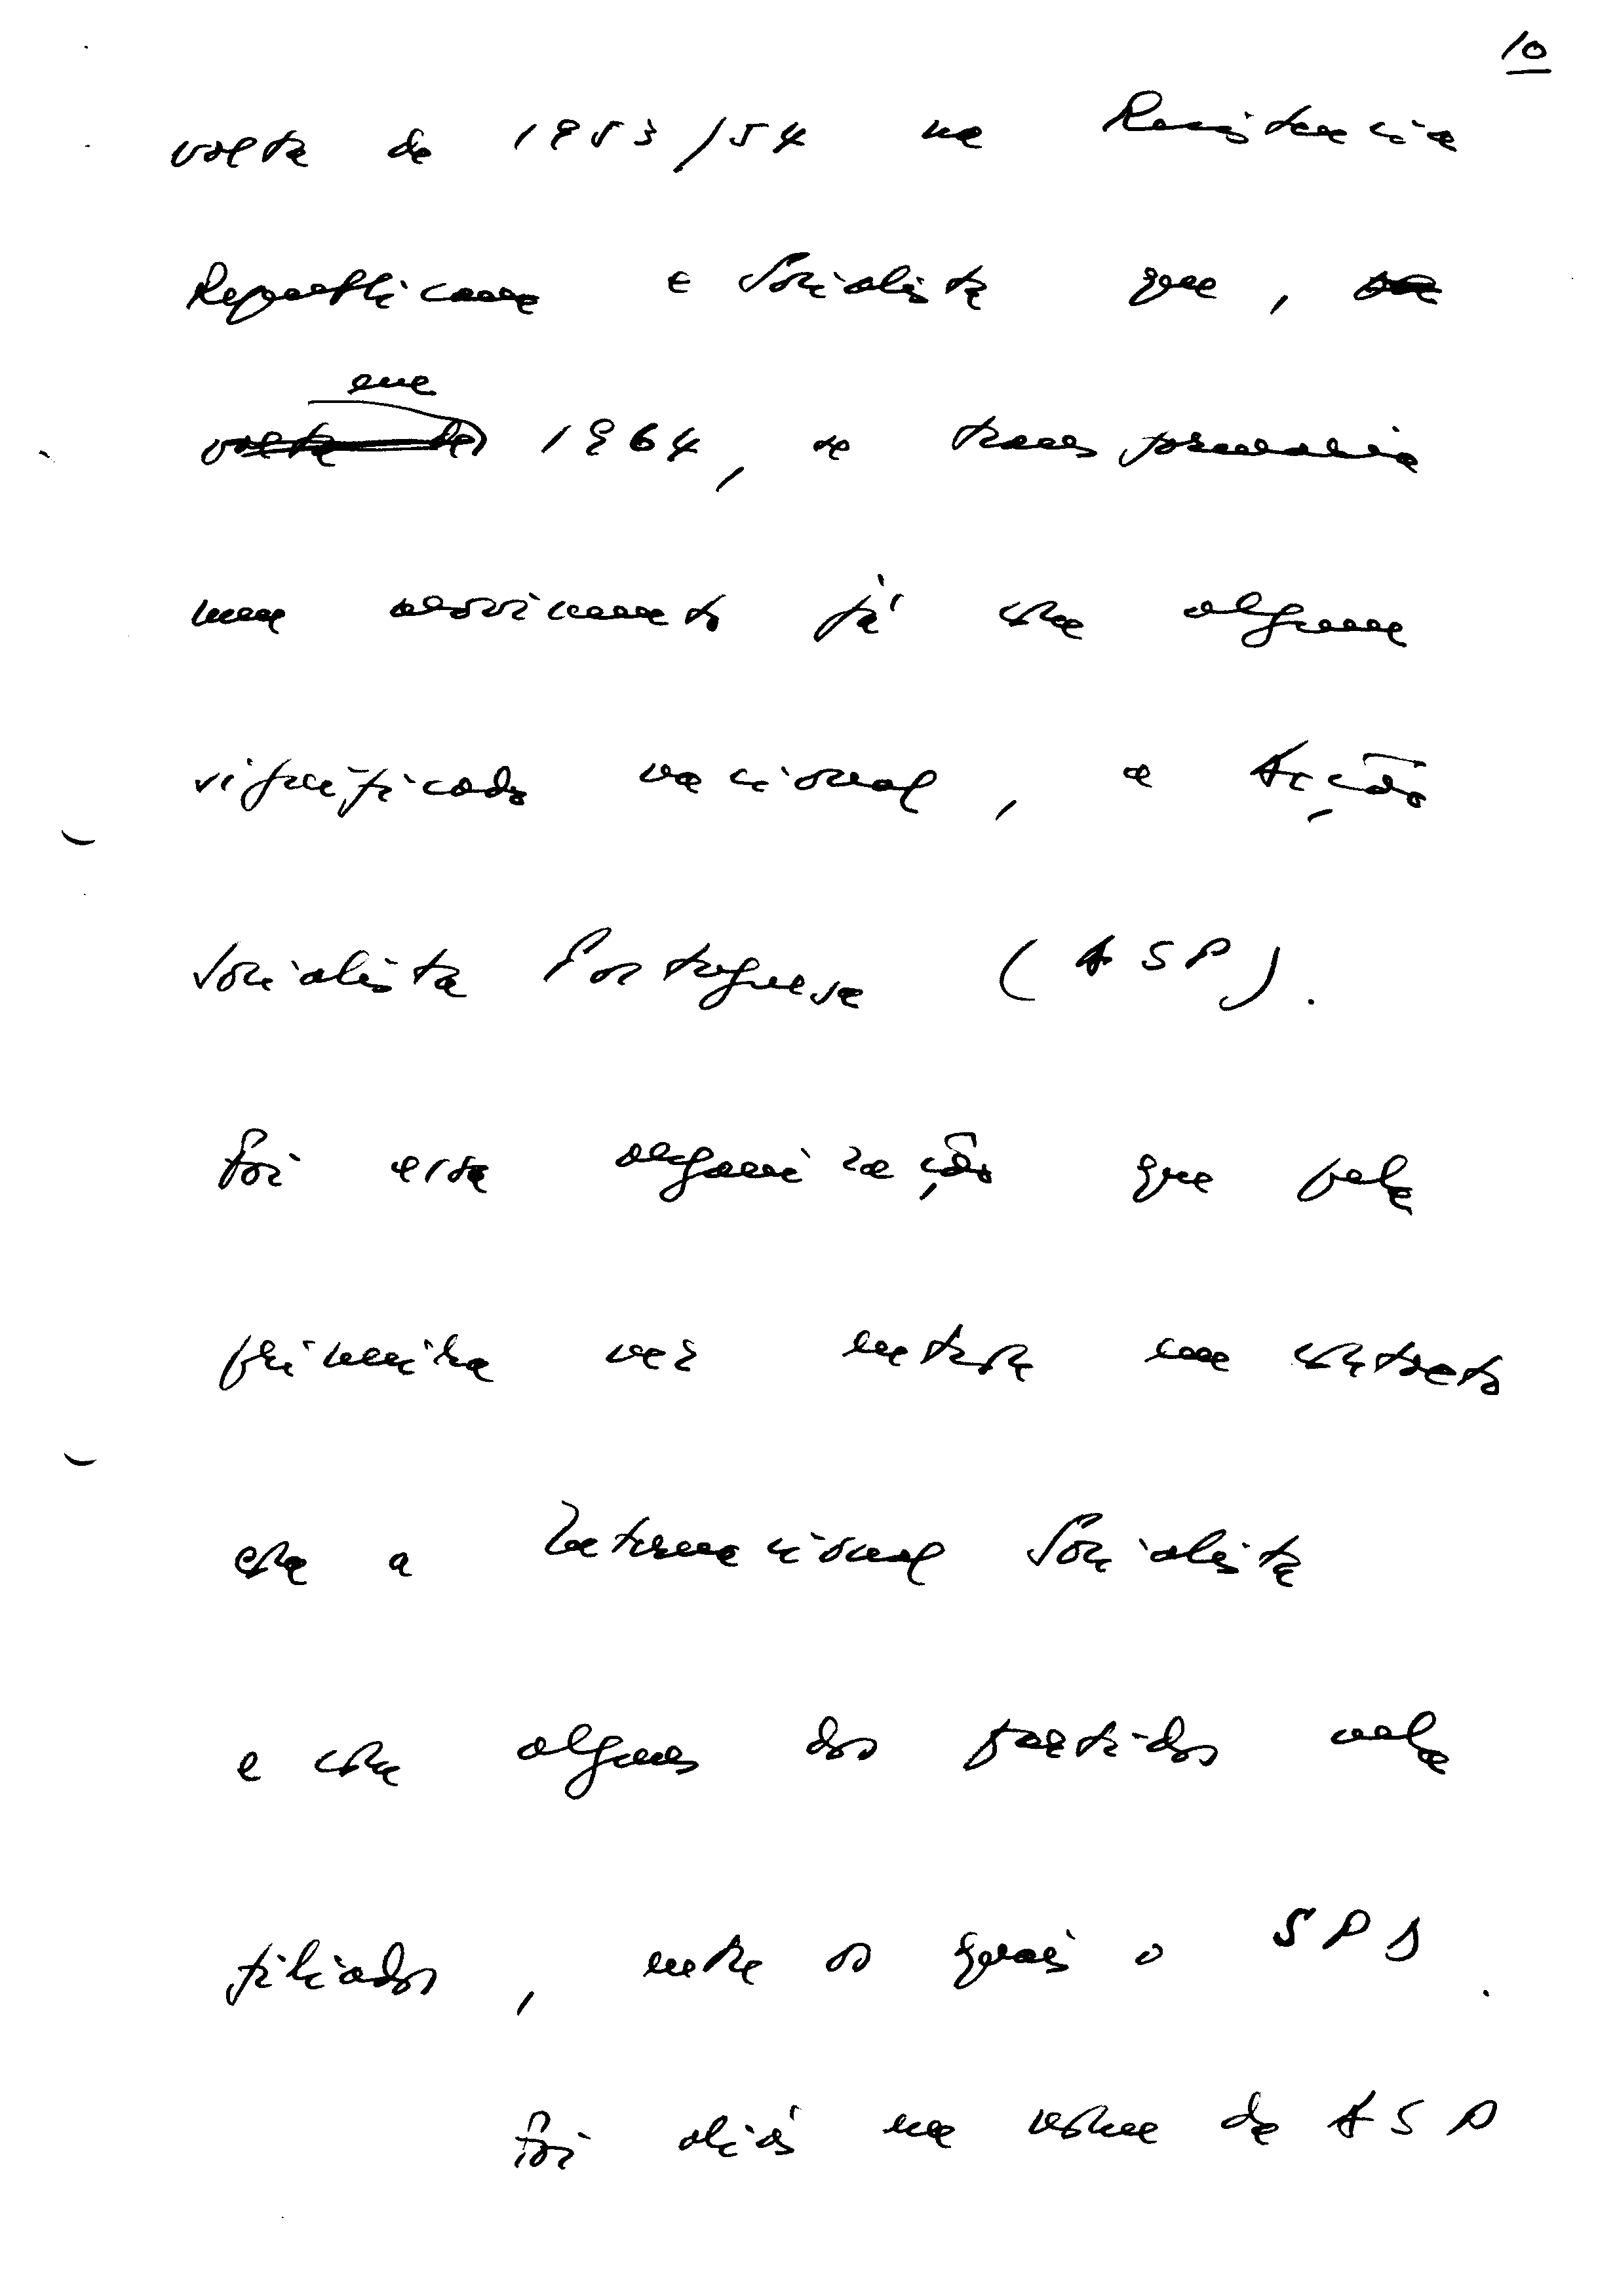 10
volta de 1953/54 na Resistência
Republicana e Socialista que,
em
volta de 1964, se transformaria
num movimento já com algum
significado nacional, a Acção
Socialista Portuguesa (ASP).
Foi essa organização que pela
primeira vez entrou em contacto
com a Internacional Socialista
e com alguns dos partidos nela
filiados, entre os quais o SPD.
Foi aliás em nome da ASP